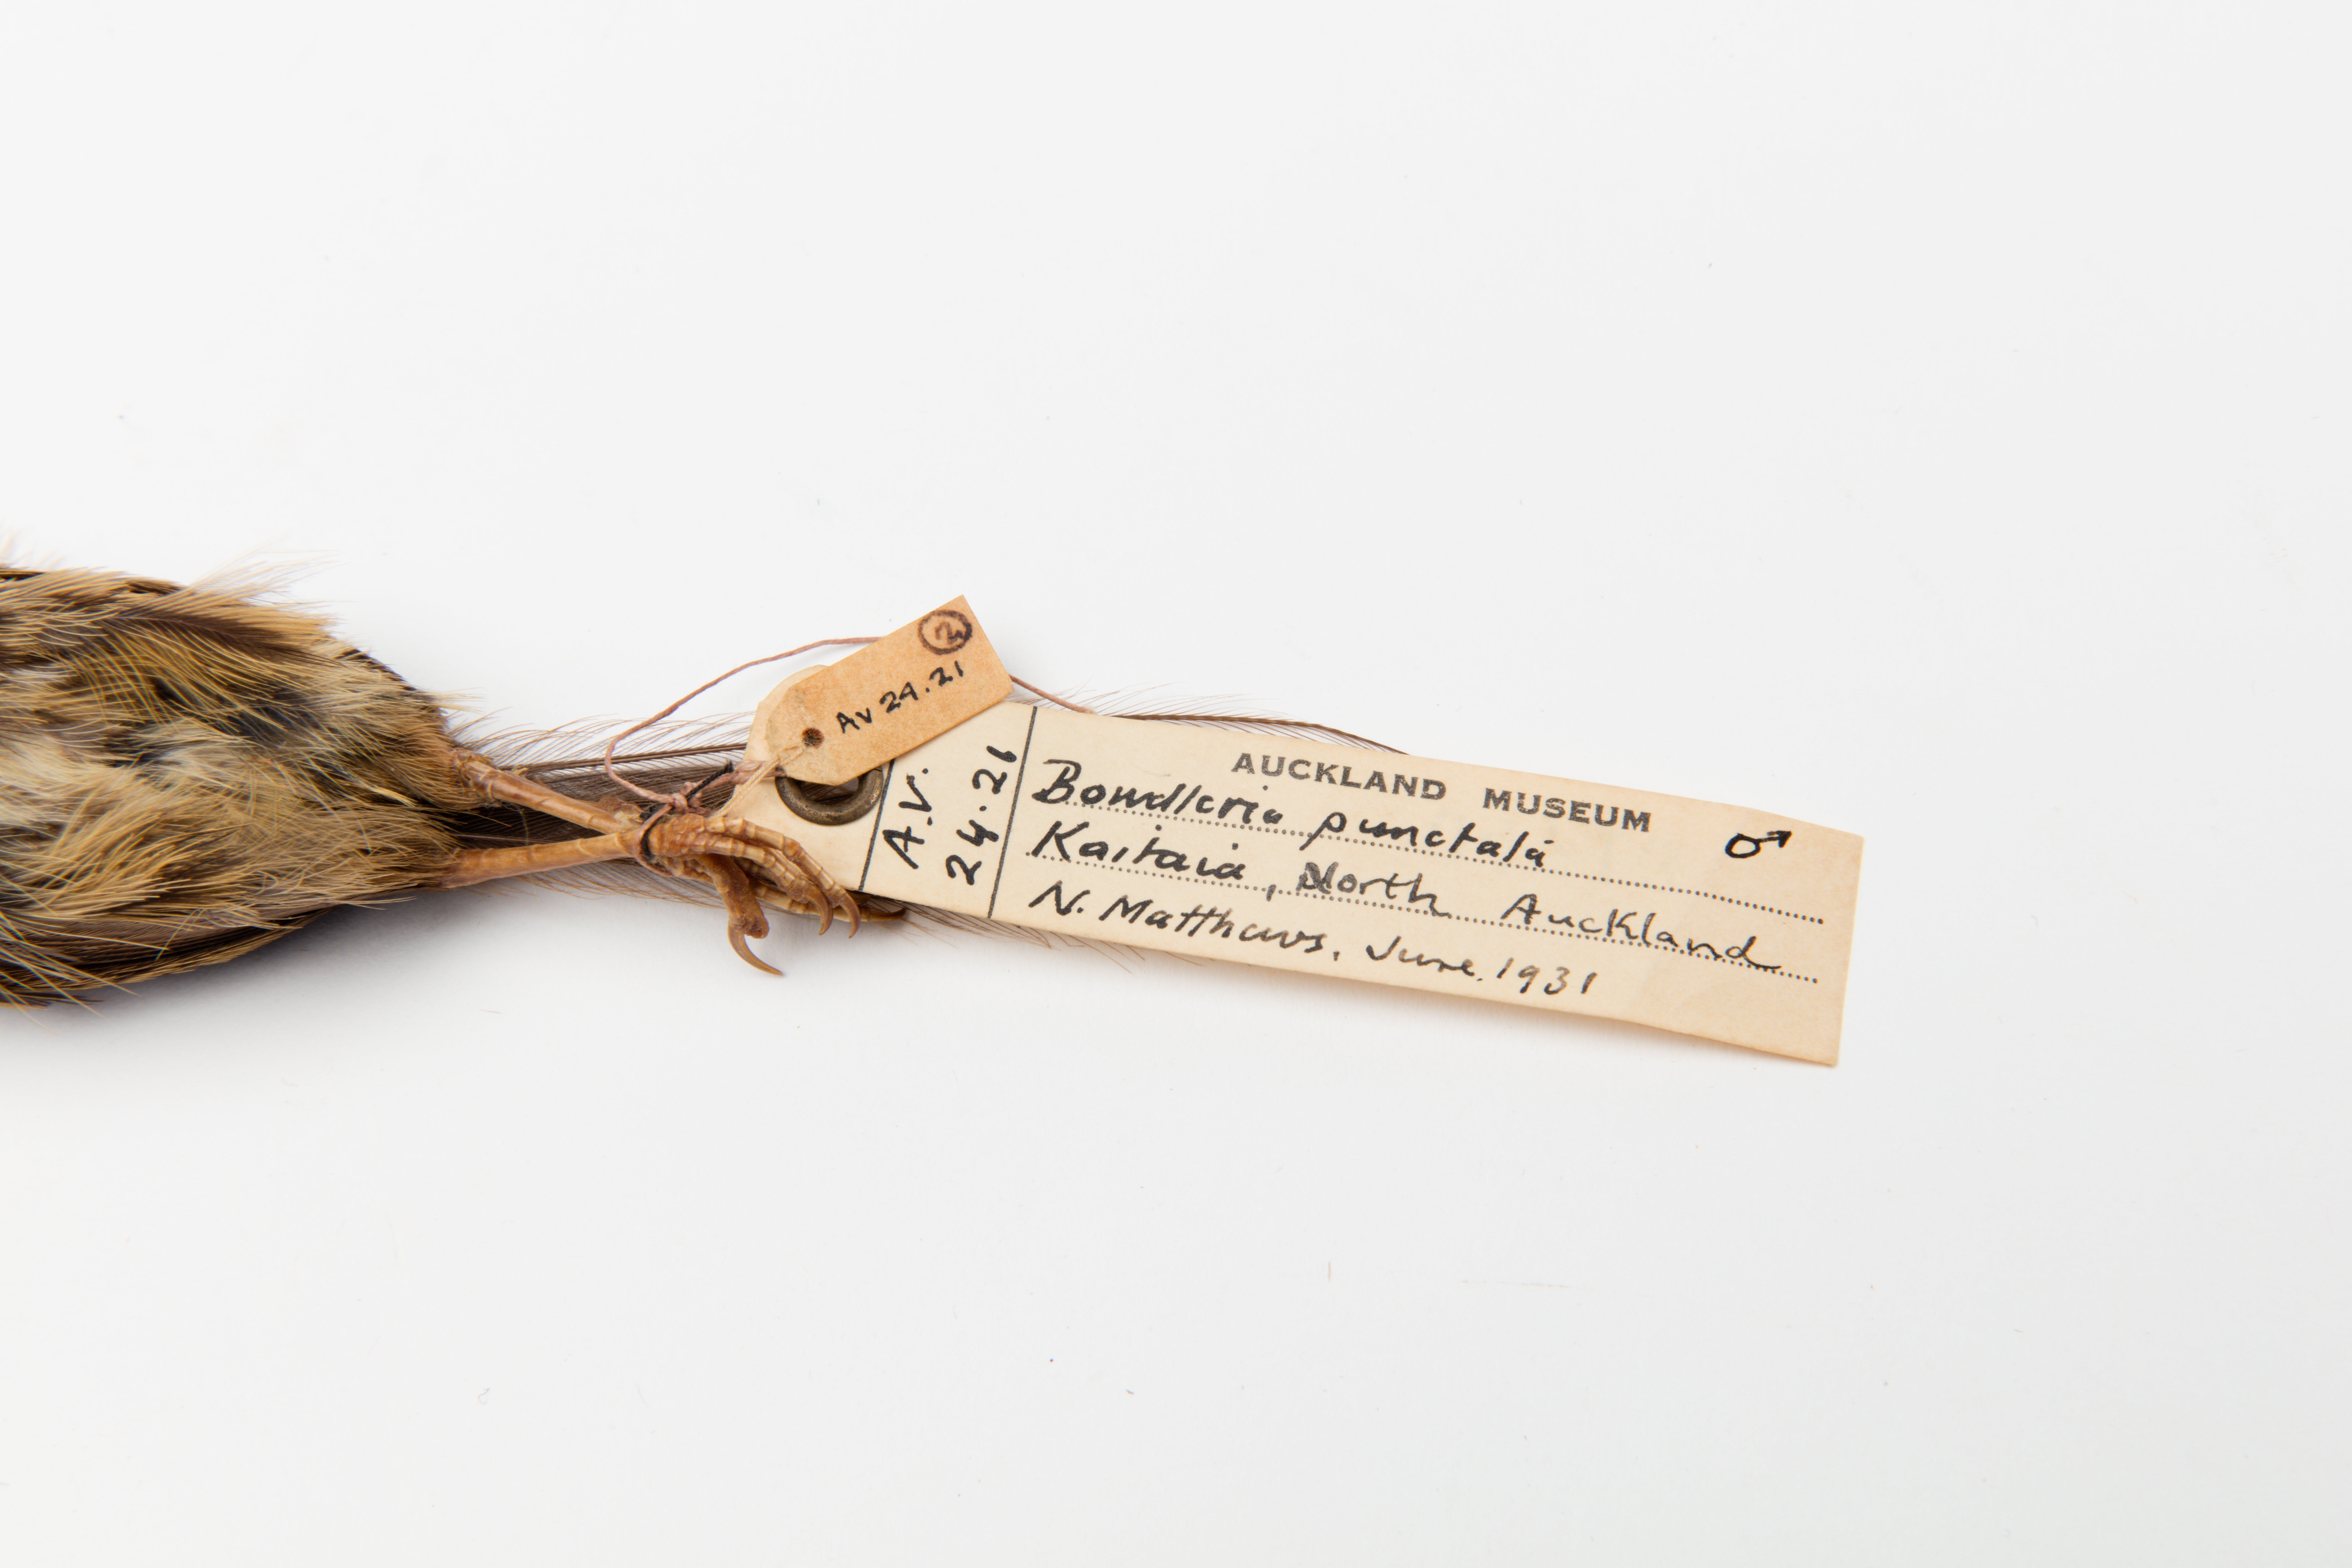 ②
Av 24.21
A.V.
24.21
AUCKLAND MUSEUM
♂
Bowdleria punctata
Kaitaia, North Auckland
N. Matthews, June. 1931